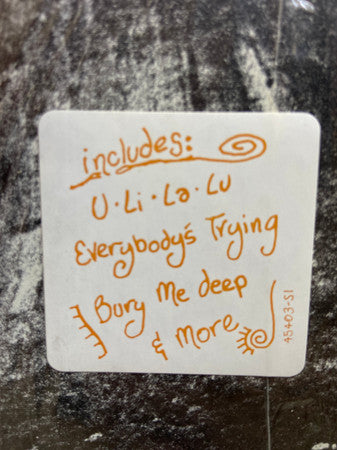 includes:
U·Li·La·Lu
Everybody's Trying
Bury Me deep
& More
45403-S1